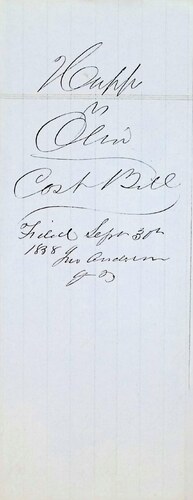 Hupp
vs
Olin
Cost Bill
Filed Sept 30th
1858
Jno Anderson